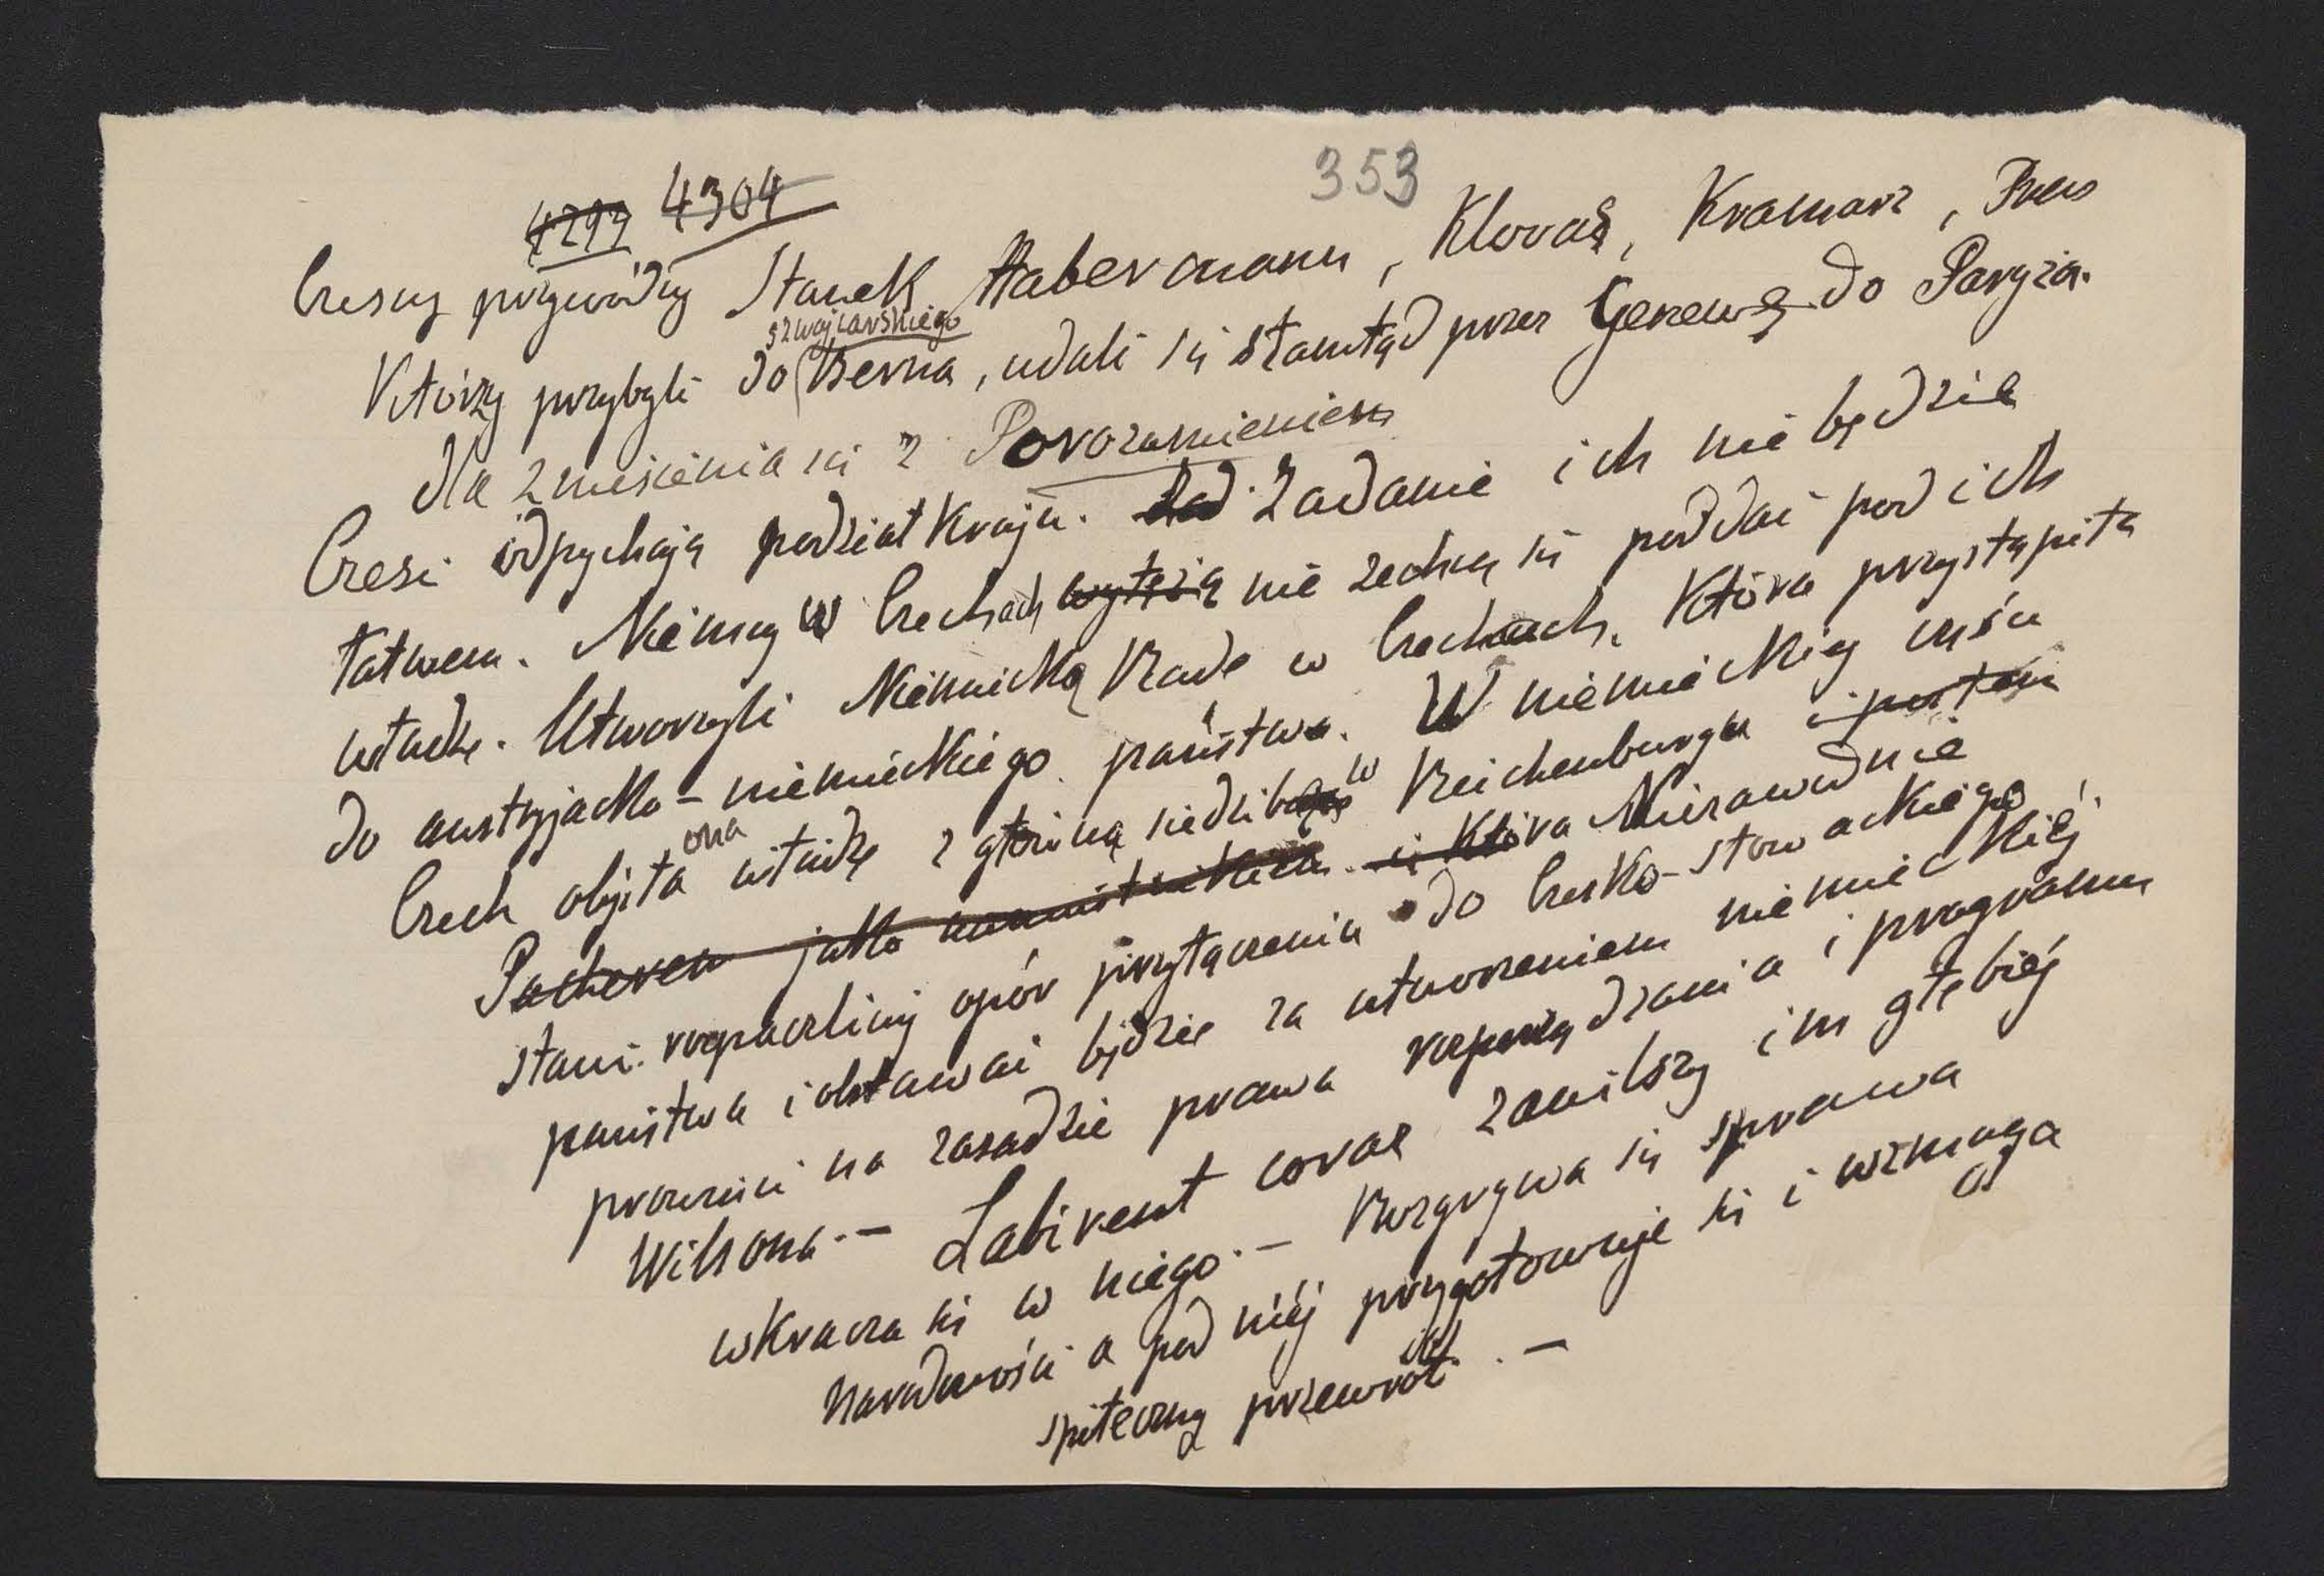 353
4299 4304
Czescy przywódcy Stanek Habermann, Klovaš, Kramarz, Preis
Którzy przybyli do szwajcarskiego Berna, udali się stamtąd przez Genewę do Paryża.
dla zniesienia się z Porozumieniem
Czesi odpychają podział kraju. Zad Zadanie ich nie będzie
łatwem. Niemcy w Czechach wytężą nie zechcą się poddać pod ich
władzę. Utworzyli Niemiecką Radę w Czechach, która przystąpiła
do austryjacko-niemieckiego państwa. W niemieckiej części
Czech objęła ona władzę z główną siedzibą w Reichenburgu i postem
Pacherem jako namiestnikiem i która Nierawodnie
stawi rozpaczliwy opór przyłączeniu do Czesko-słowackiego
państwa i obstawać będzie za utworzeniem niemieckiej
prowincii na zasadzie prawa rozporządzania i programu
Wilsona. — Labirent coraz zawilszy im głębiej
wkracza się w niego. — Rozgrywa się sprawa
Narodowości a pod niej przygotowuje się i wzmaga
społeczny przewrót. —